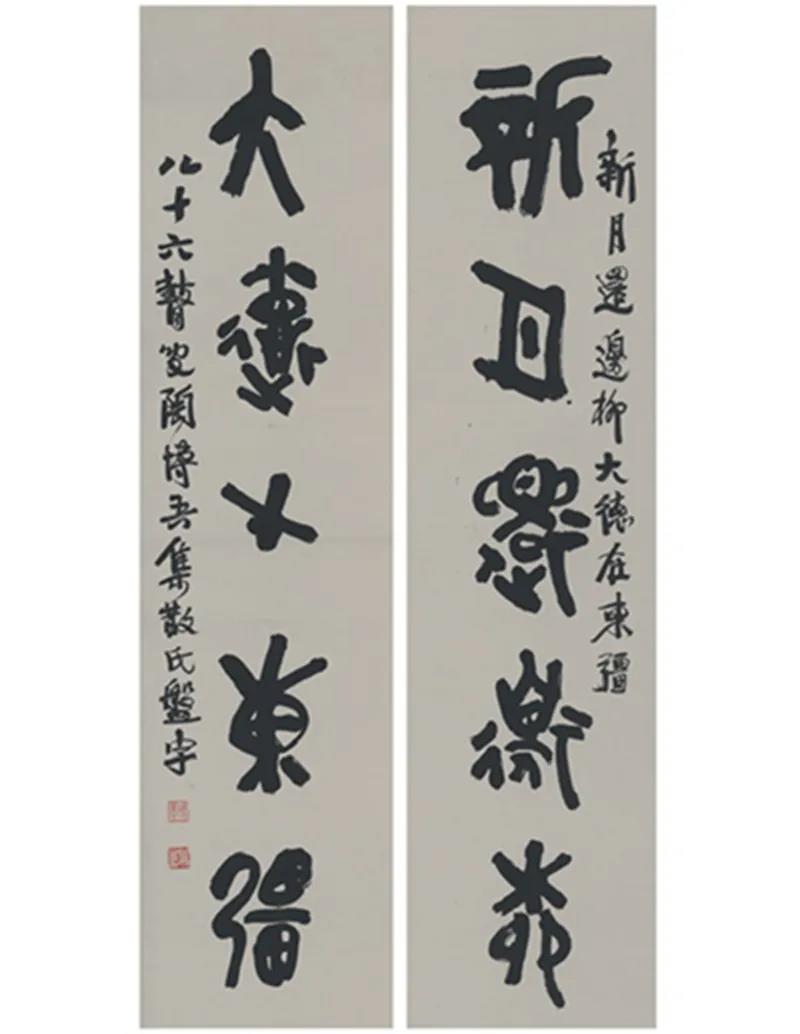 新月還邊柳大德在東疆
新月還邊柳
大德在東疆
八十六瞽叟陶博吾集散氏盤字